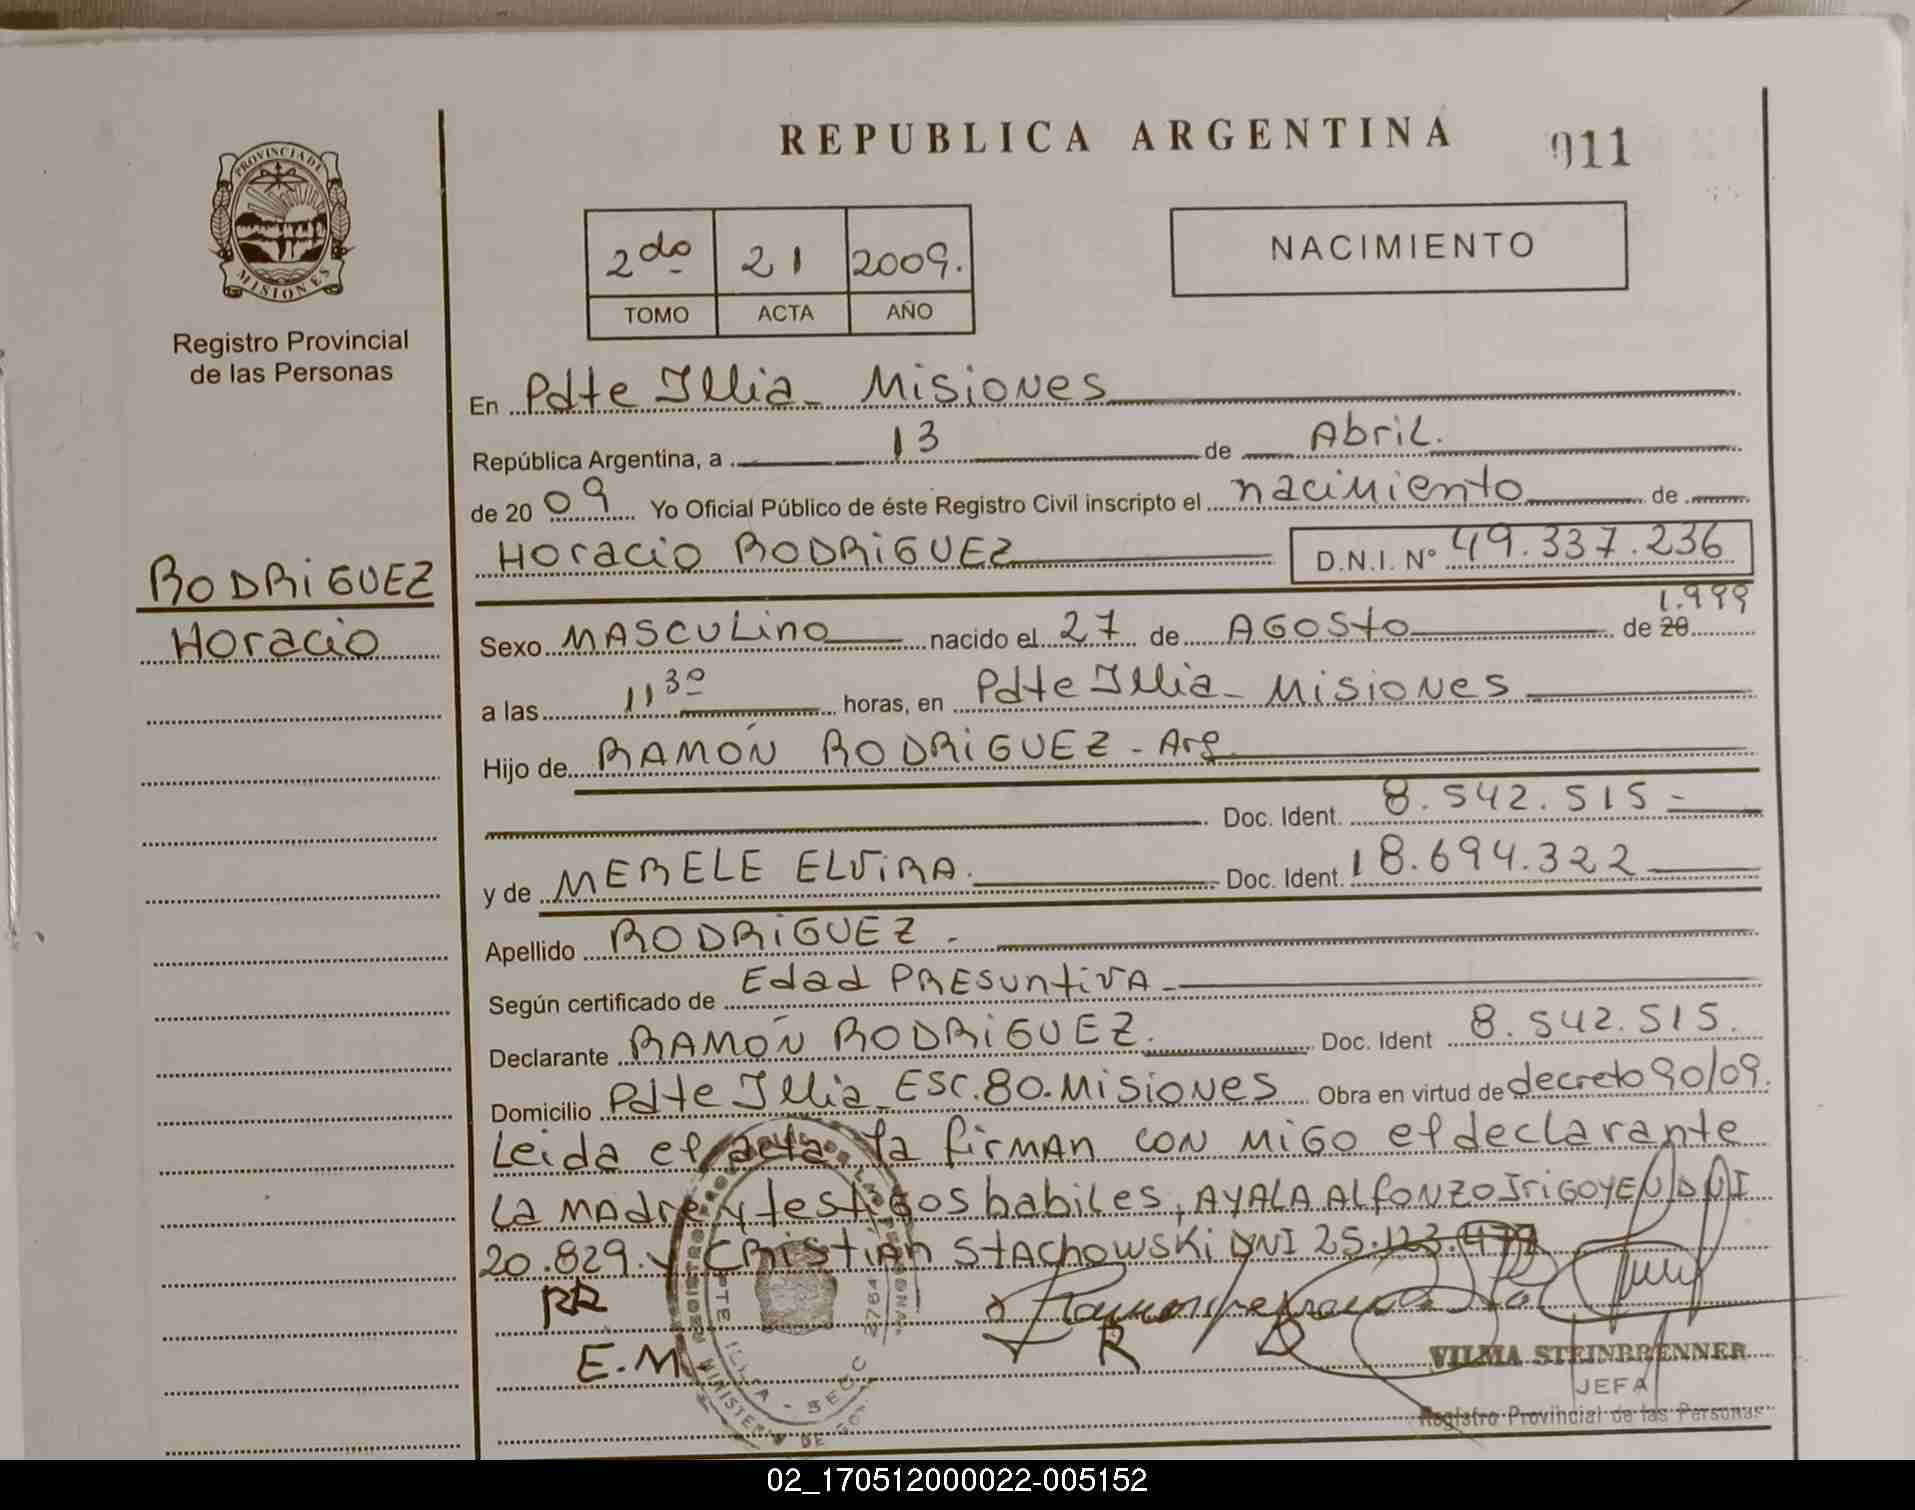 REPUBLICA ARGENTINA
011
PROVINCIA DE
MISIONES
Registro Provincial
de las Personas
2do 21 2009.
TOMO ACTA AÑO
NACIMIENTO
En Pdte Illia - Misiones
República Argentina, a 13 de Abril.
de 20 09 Yo Oficial Público de éste Registro Civil inscripto el nacimiento de
Horacio RODRIGUEZ D.N.I. Nº 49.337.236
RODRIGUEZ
Horacio
Sexo MASCULino nacido el 27 de AGOSto de 20 1.999
a las 11 30 horas, en Pdte Illia - Misiones
Hijo de RAMÓN RODRIGUEZ - Arg.
Doc. Ident. 8.542.515 -
y de MERELE ELVIRA. Doc. Ident. 18.694.322
Apellido RODRIGUEZ -
Según certificado de Edad PRESUntiVA -
Declarante RAMÓN RODRIGUEZ. Doc. Ident 8.542.515.
Domicilio Pdte Illia - ESC. 80. Misiones Obra en virtud de decreto 90/09.
Leida el acta, la firman con migo el declarante
La madre y testigos habiles, AYALA Alfonzo Irigoyen DNI
20.829. y Cristian Stachowski DNI 25.123.479
RR
E.M.
R R
VILMA STEINBRENNER
JEFA
Registro Provincial de las Personas
02_170512000022-005152